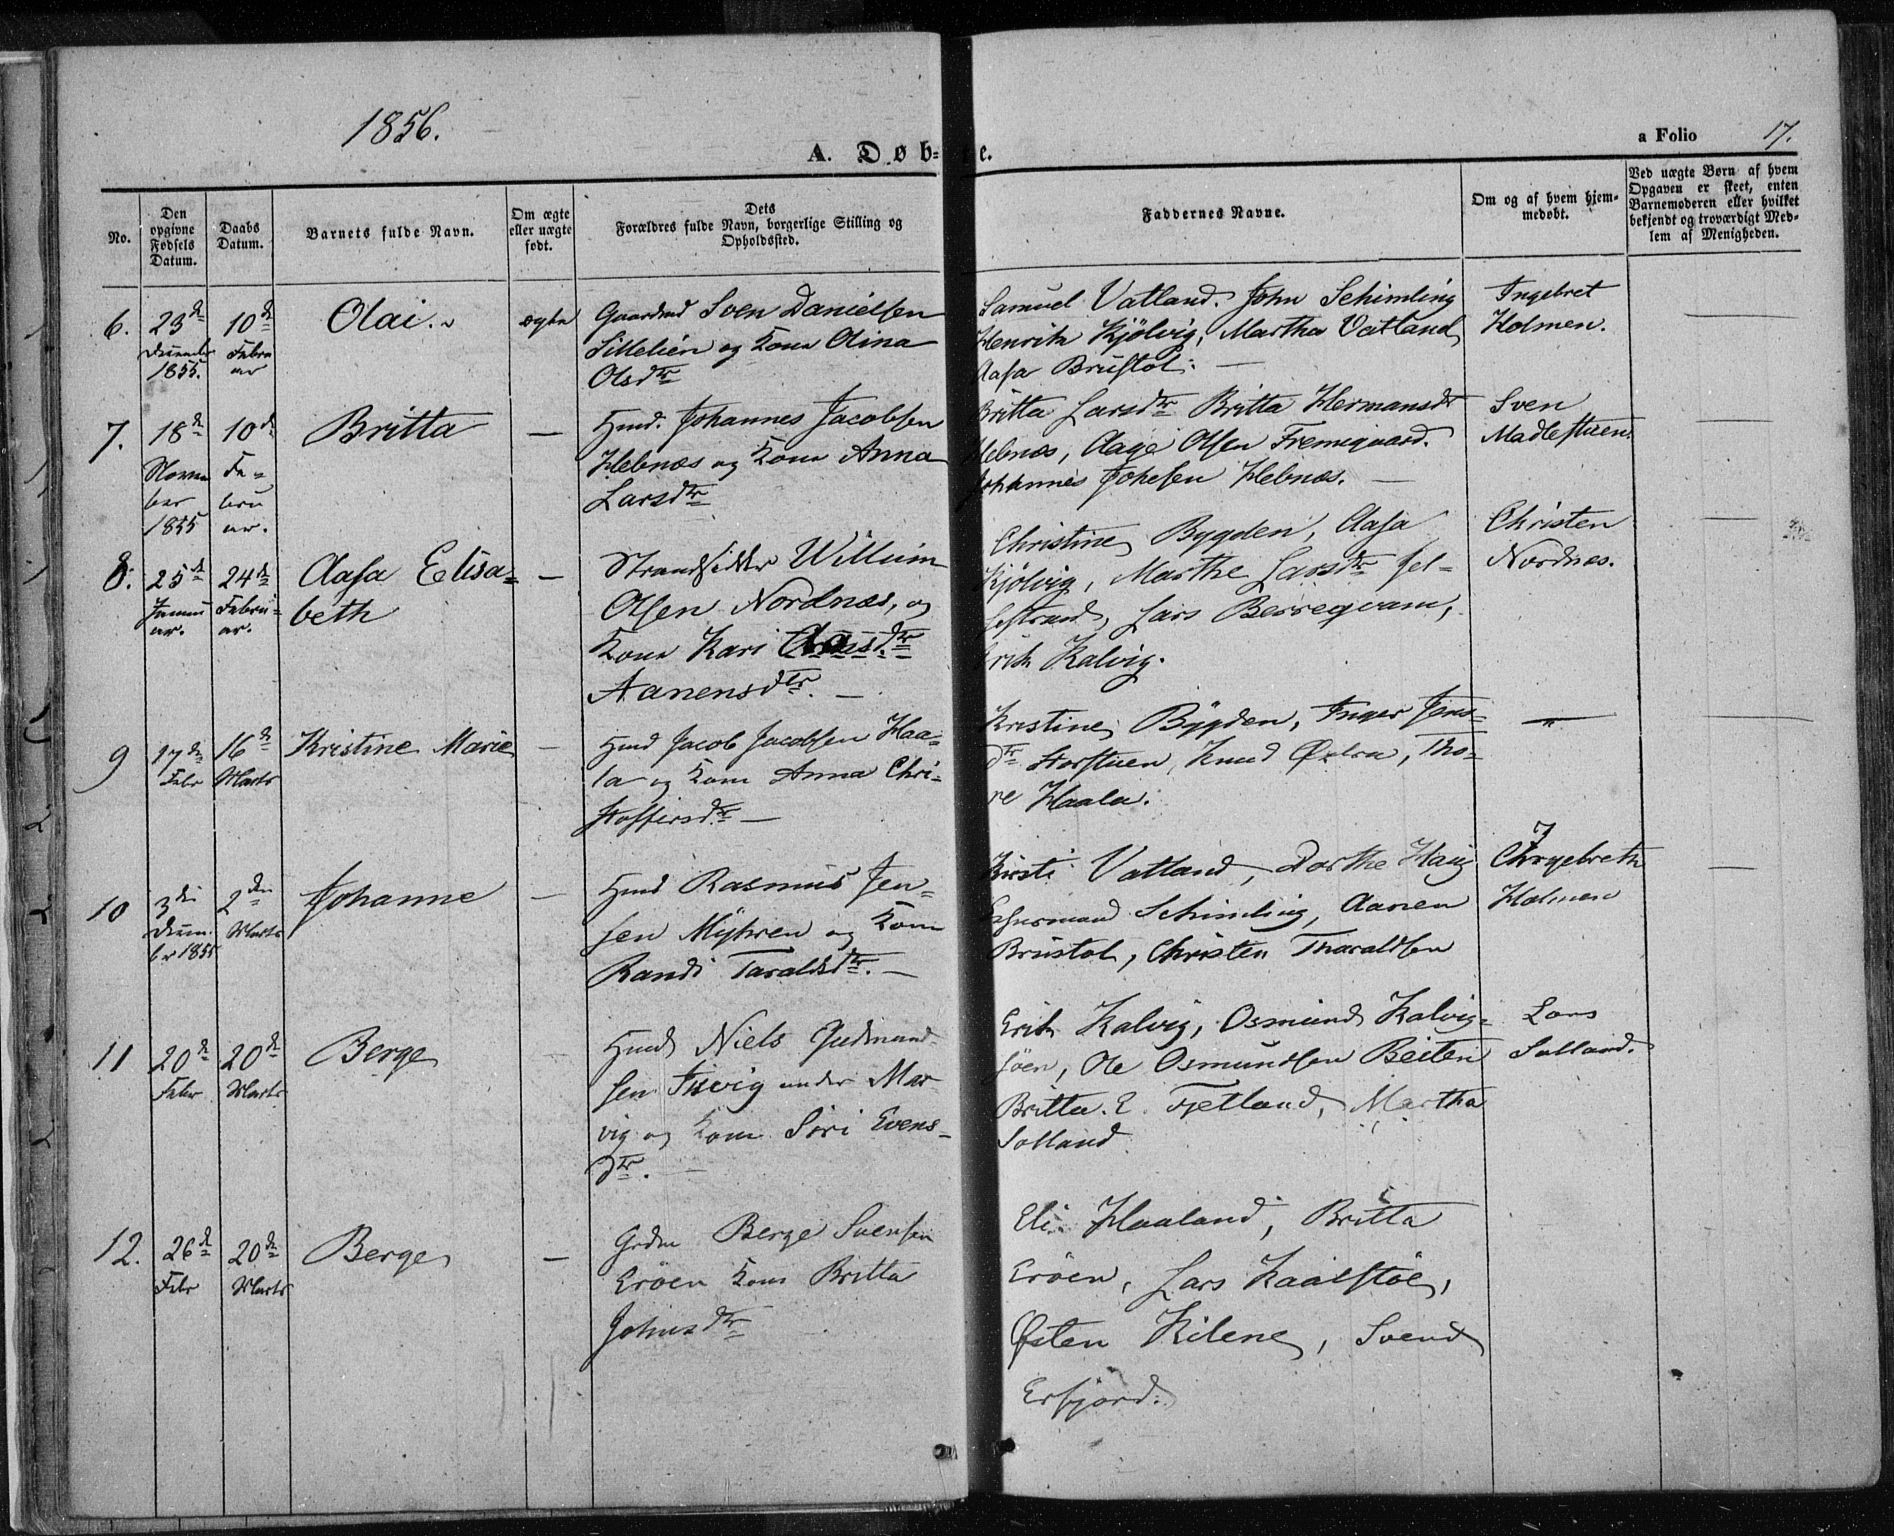 1856.
A. Døb-
e.
a Folio 17.
No.
Den opgivne Fødsels Datum.
Daabs Datum.
Barnets fulde Navn.
Om ægte eller uægte født.
Dets Forældres fulde Navn, borgerlige Stilling og Opholdssted.
Faddernes Navne.
Om og af hvem hjemmedøbt.
Ved uægte Børn af hvem Opgaven er skeet, enten Barnemoderen eller hvilket bekjendt og troværdigt Medlem af Menigheden.
6.
23de
December
1855.
10de
Febru
ar
Olai.
ægte
Gaardmd Sven Danielsen
Sillelien og Kone Olina
Olsdtr
Samuel Vatland. John Schimling
Henrik Kjölvig, Martha Vatland
Aasa Brustol. —
Ingebret
Holmen.
7.
18de
Novem
ber
1855
10de
Fe-
bru
ar.
Britta
—
Hmd. Johannes Jacobsen
Hebnæs og Kone Anna
Larsdtr
Britta Larsdtr Britta Hermansdtr
Hebnæs, Aage Olsen Fremigaard.
Johannes Johesen Hebnæs. —
Sven
Madlestuen.
8.
25de
Janu
ar.
24de
Febru-
ar.
Aasa Elisa-
beth
—
Strandsidder Willum
Olsen Nordnæs, og
Kone Kari
Aanensdtr. —
Christine Bygden, Aasa
Kjölvig, Marthe Larsdtr Jel-
sestrand, Lars Berregvam,
Erik Kalvig.
Christen
Nordnes.
9
17de
Febr
16de
Marts
Kristine Marie
—
Hmd Jacob Jacobsen Haa-
la og Kone Anna Chri-
stoffersdtr —
Kristine Bÿgden, Inger Jens-
dtr Storstuen, Knud Østrø, Tho-
re Haala.
"
10
3die
Decem
br 1855
2den
Marts
Johanne
—
Hmd Rasmus Jen-
sen Mÿhren og Kone
Randi Taraldsdtr. —
Kirsti Vatland, Dorthe Haug
Schimling, Aanen
Brustol, Christen Tharaldsen
Holmen
11
20de
Febr
20de
Marts
Berge
Hmd Niels Gudmund-
sen Tuvig under Mar
vig og Kone Siri Evens-
dtr. —
Erik Kalvig, Osmund Kalvig-
søen, Ole Osmundsen Beiten
Britta E. Fjetland, Martha
Solland
Lars
Solland.
12.
26de
Febr
20de
Marts
Berge
—
Grdm Berge Svensen
Erøen Kone Britta
Johnsdtr
Eli Haaland, Britta
Erøen, Lars Kaalstøl,
Østen Kilene, Svend
Erfjord.